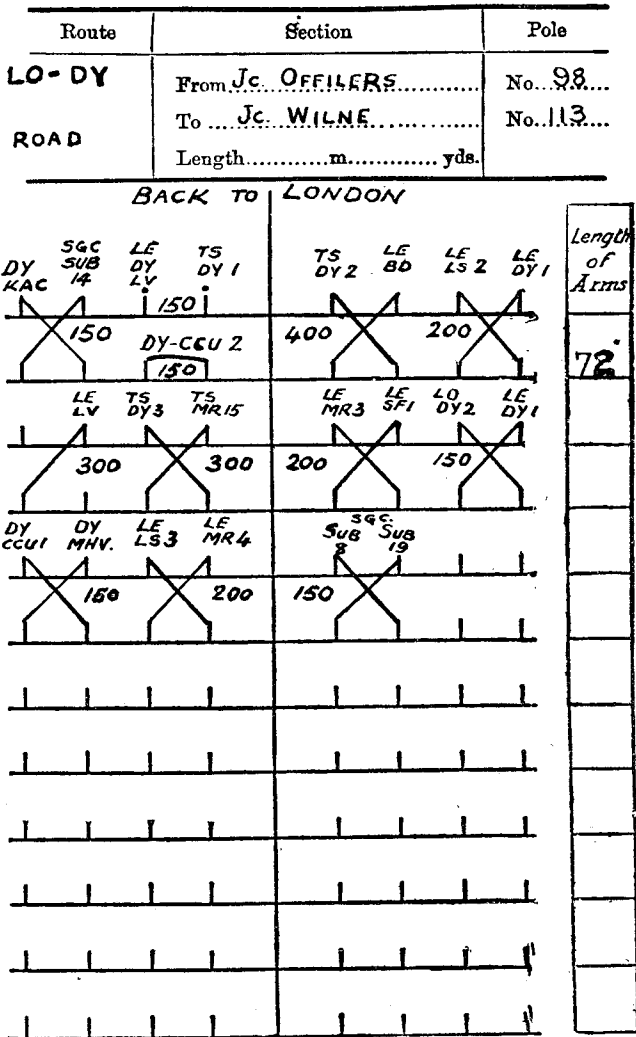 Route Section Pole
LO-DY From Jc. OFFILERS No. 98
ROAD To Jc. WILNE No. 113
Length m. yds.
BACK TO LONDON
Length of Arms
DY KAC SGC SUB 14 LE DY LV TS DY 1 TS DY 2 LE BD LE LS 2 LE DY 1
150 150 400 200
DY-CCU 2
150
72"
LE LV TS DY 3 TS MR 15 LE MR 3 LE SF 1 LO DY 2 LE DY 1
300 300 200 150
DY CCU 1 DY MHV. LE LS 3 LE MR 4 SGC. SUB 8 SUB 19
150 200 150